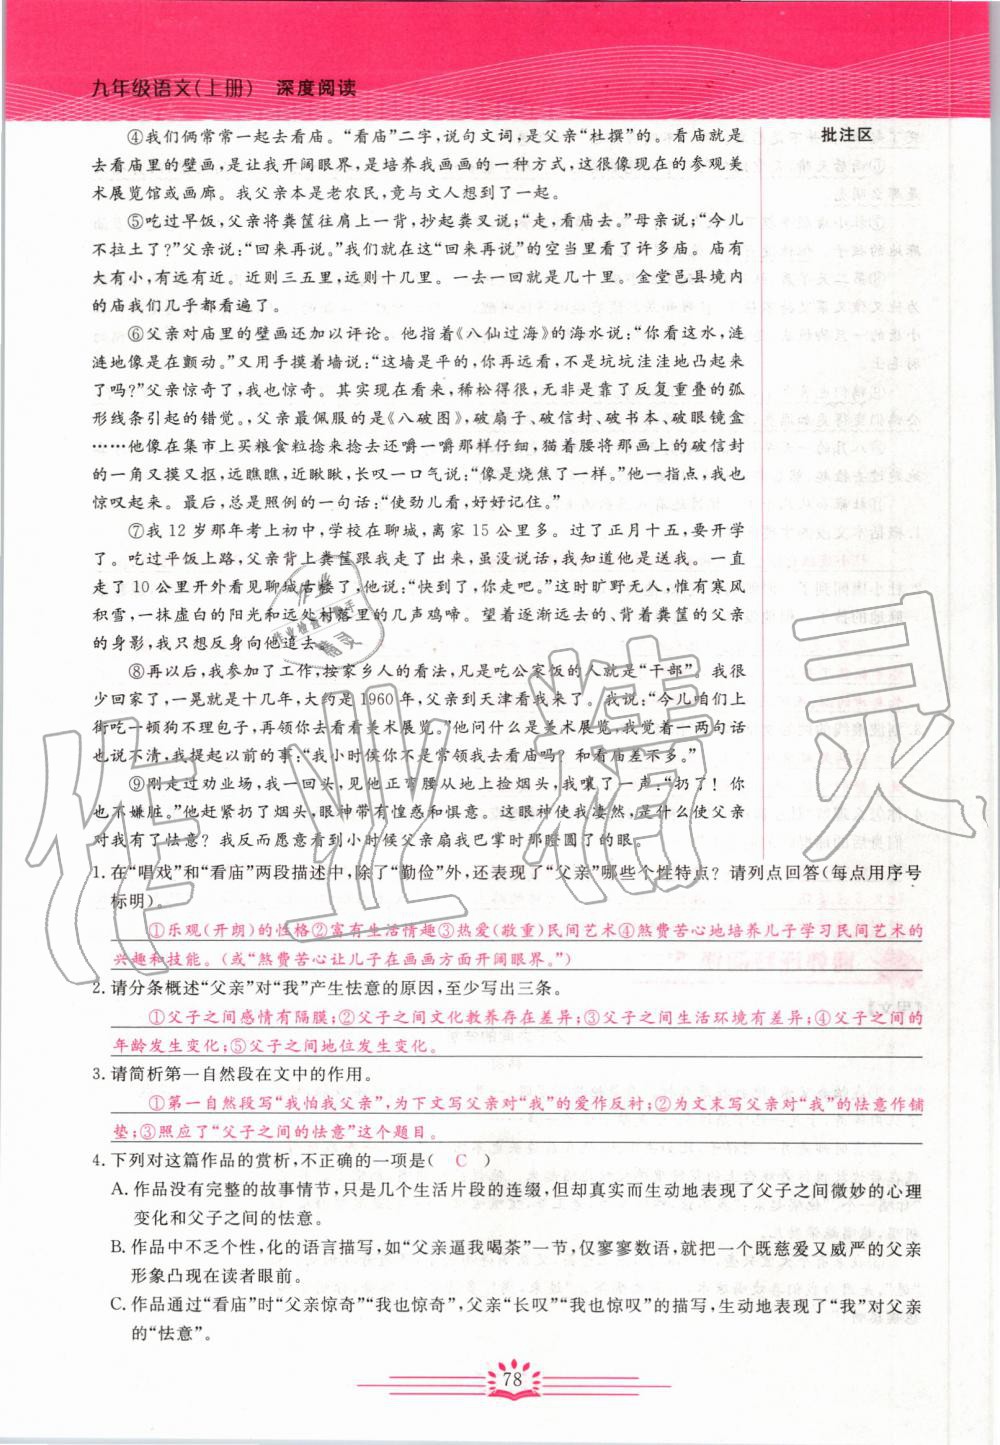 九年级语文(上册) 深度阅读
批注区
④我们俩常常一起去看庙。“看庙”二字，说句文词，是父亲“杜撰”的。看庙就是
去看庙里的壁画，是让我开阔眼界，是培养我画画的一种方式，这很像现在的参观美
术展览馆或画廊。我父亲本是老农民，竟与文人想到了一起。
⑤吃过早饭，父亲将粪筐往肩上一背，抄起粪叉说：“走，看庙去。”母亲说：“今儿
不拉土了？”父亲说：“回来再说。”我们就在“回来再说”的空当里看了许多庙。庙有
大有小，有远有近。近则三五里，远则十几里。一去一回就是几十里。金堂邑县境内
的庙我们几乎都看遍了。
⑥父亲对庙里的壁画还加以评论。他指着《八仙过海》的海水说：“你看这水，涟
涟地像是在颤动。”又用手摸着墙说：“这墙是平的，怎么看来，不是坑坑洼洼地凸起来
了吗？”父亲惊奇了，我也惊奇。其实现在看来，稀松得很，无非是靠了反复重叠的弧
形线条引起的错觉。，父亲最佩服的是《八破图》，破扇子、破信封、破书本、破眼镜盒
……他像在集市上买粮食粒捻来捻去还嚼一嚼那样仔细，猫着腰将那画上的破信封
的一角又摸又抠，远瞧瞧，近瞅瞅，长叹一口气说：“像是烧焦了一样。”他一指点，我也
惊叹起来。最后，总是照例的一句话：“使劲儿看，好好记住。”
⑦我 12 岁那年考上初中，学校在聊城，离家 15 公里多。过了正月十五，要开学
了。吃过平饭上路，父亲背上粪筐跟我走了出来，虽没说话，我知道他是送我。一直
走了 10 公里开外看见聊城古楼了，他说：“快到了，你走吧。”这时旷野无人，惟有寒风
积雪，一抹虚白的阳光和远处村落里的几声鸡啼。望着逐渐远去的、背粪筐的父亲
的身影，我只想反身向他追去……
⑧再以后，我参加了工作，按家乡人的看法，凡是吃公家饭的人就是“干部”。我很
少回家了，一晃就是十几年，大约是1960年，父亲到天津看我来了。我说：“今儿咱们上
街吃一顿狗不理包子，再领你去看看美术展览。”他问什么是美术展览，我觉着一两句话
也说不清，我提起以前的事：“我小时候你不是常领我去看庙吗？和看庙差不多。”
⑨刚走过劝业场，我一回头，见他正弯腰从地上捡烟头，我嚷了一声：“扔了！你
也不嫌脏。”他赶紧扔了烟头，眼神带有惶惑和惧意。这眼神使我凄然，是什么使父亲
对我有了怯意？我反而愿意看到小时候父亲扇我巴掌时那瞪圆了的眼。
1. 在“唱戏”和“看庙”两段描述中，除了“勤俭”外，还表现了“父亲”哪些个性特点？请列点回答(每点用序号
标明)。
①乐观(开朗)的性格②富有生活情趣③热爱(敬重)民间艺术④煞费苦心地培养儿子学习民间艺术的
兴趣和技能。(或“煞费苦心让儿子在画画方面开阔眼界。”)
2. 请分条概述“父亲”对“我”产生怯意的原因，至少写出三条。
①父子之间感情有隔膜；②父子之间文化教养存在差异；③父子之间生活环境有差异；④父子之间的
年龄发生变化；⑤父子之间地位发生变化。
3. 请简析第一自然段在文中的作用。
①第一自然段写“我怕我父亲”，为下文写父亲对“我”的爱作反衬；②为文末写父亲对“我”的怯意作铺
垫；③照应了“父子之间的怯意”这个题目。
4. 下列对这篇作品的赏析，不正确的一项是( C )
A. 作品没有完整的故事情节，只是几个生活片段的连缀，但却真实而生动地表现了父子之间微妙的心理
变化和父子之间的怯意。
B. 作品中不乏个性，化的语言描写，如“父亲逼我喝茶”一节，仅寥寥数语，就把一个既慈爱又威严的父亲
形象凸现在读者眼前。
C. 作品通过“看庙”时“父亲惊奇”“我也惊奇”，父亲“长叹”“我也惊叹”的描写，生动地表现了“我”对父亲
的“怯意”。
78
作业精灵